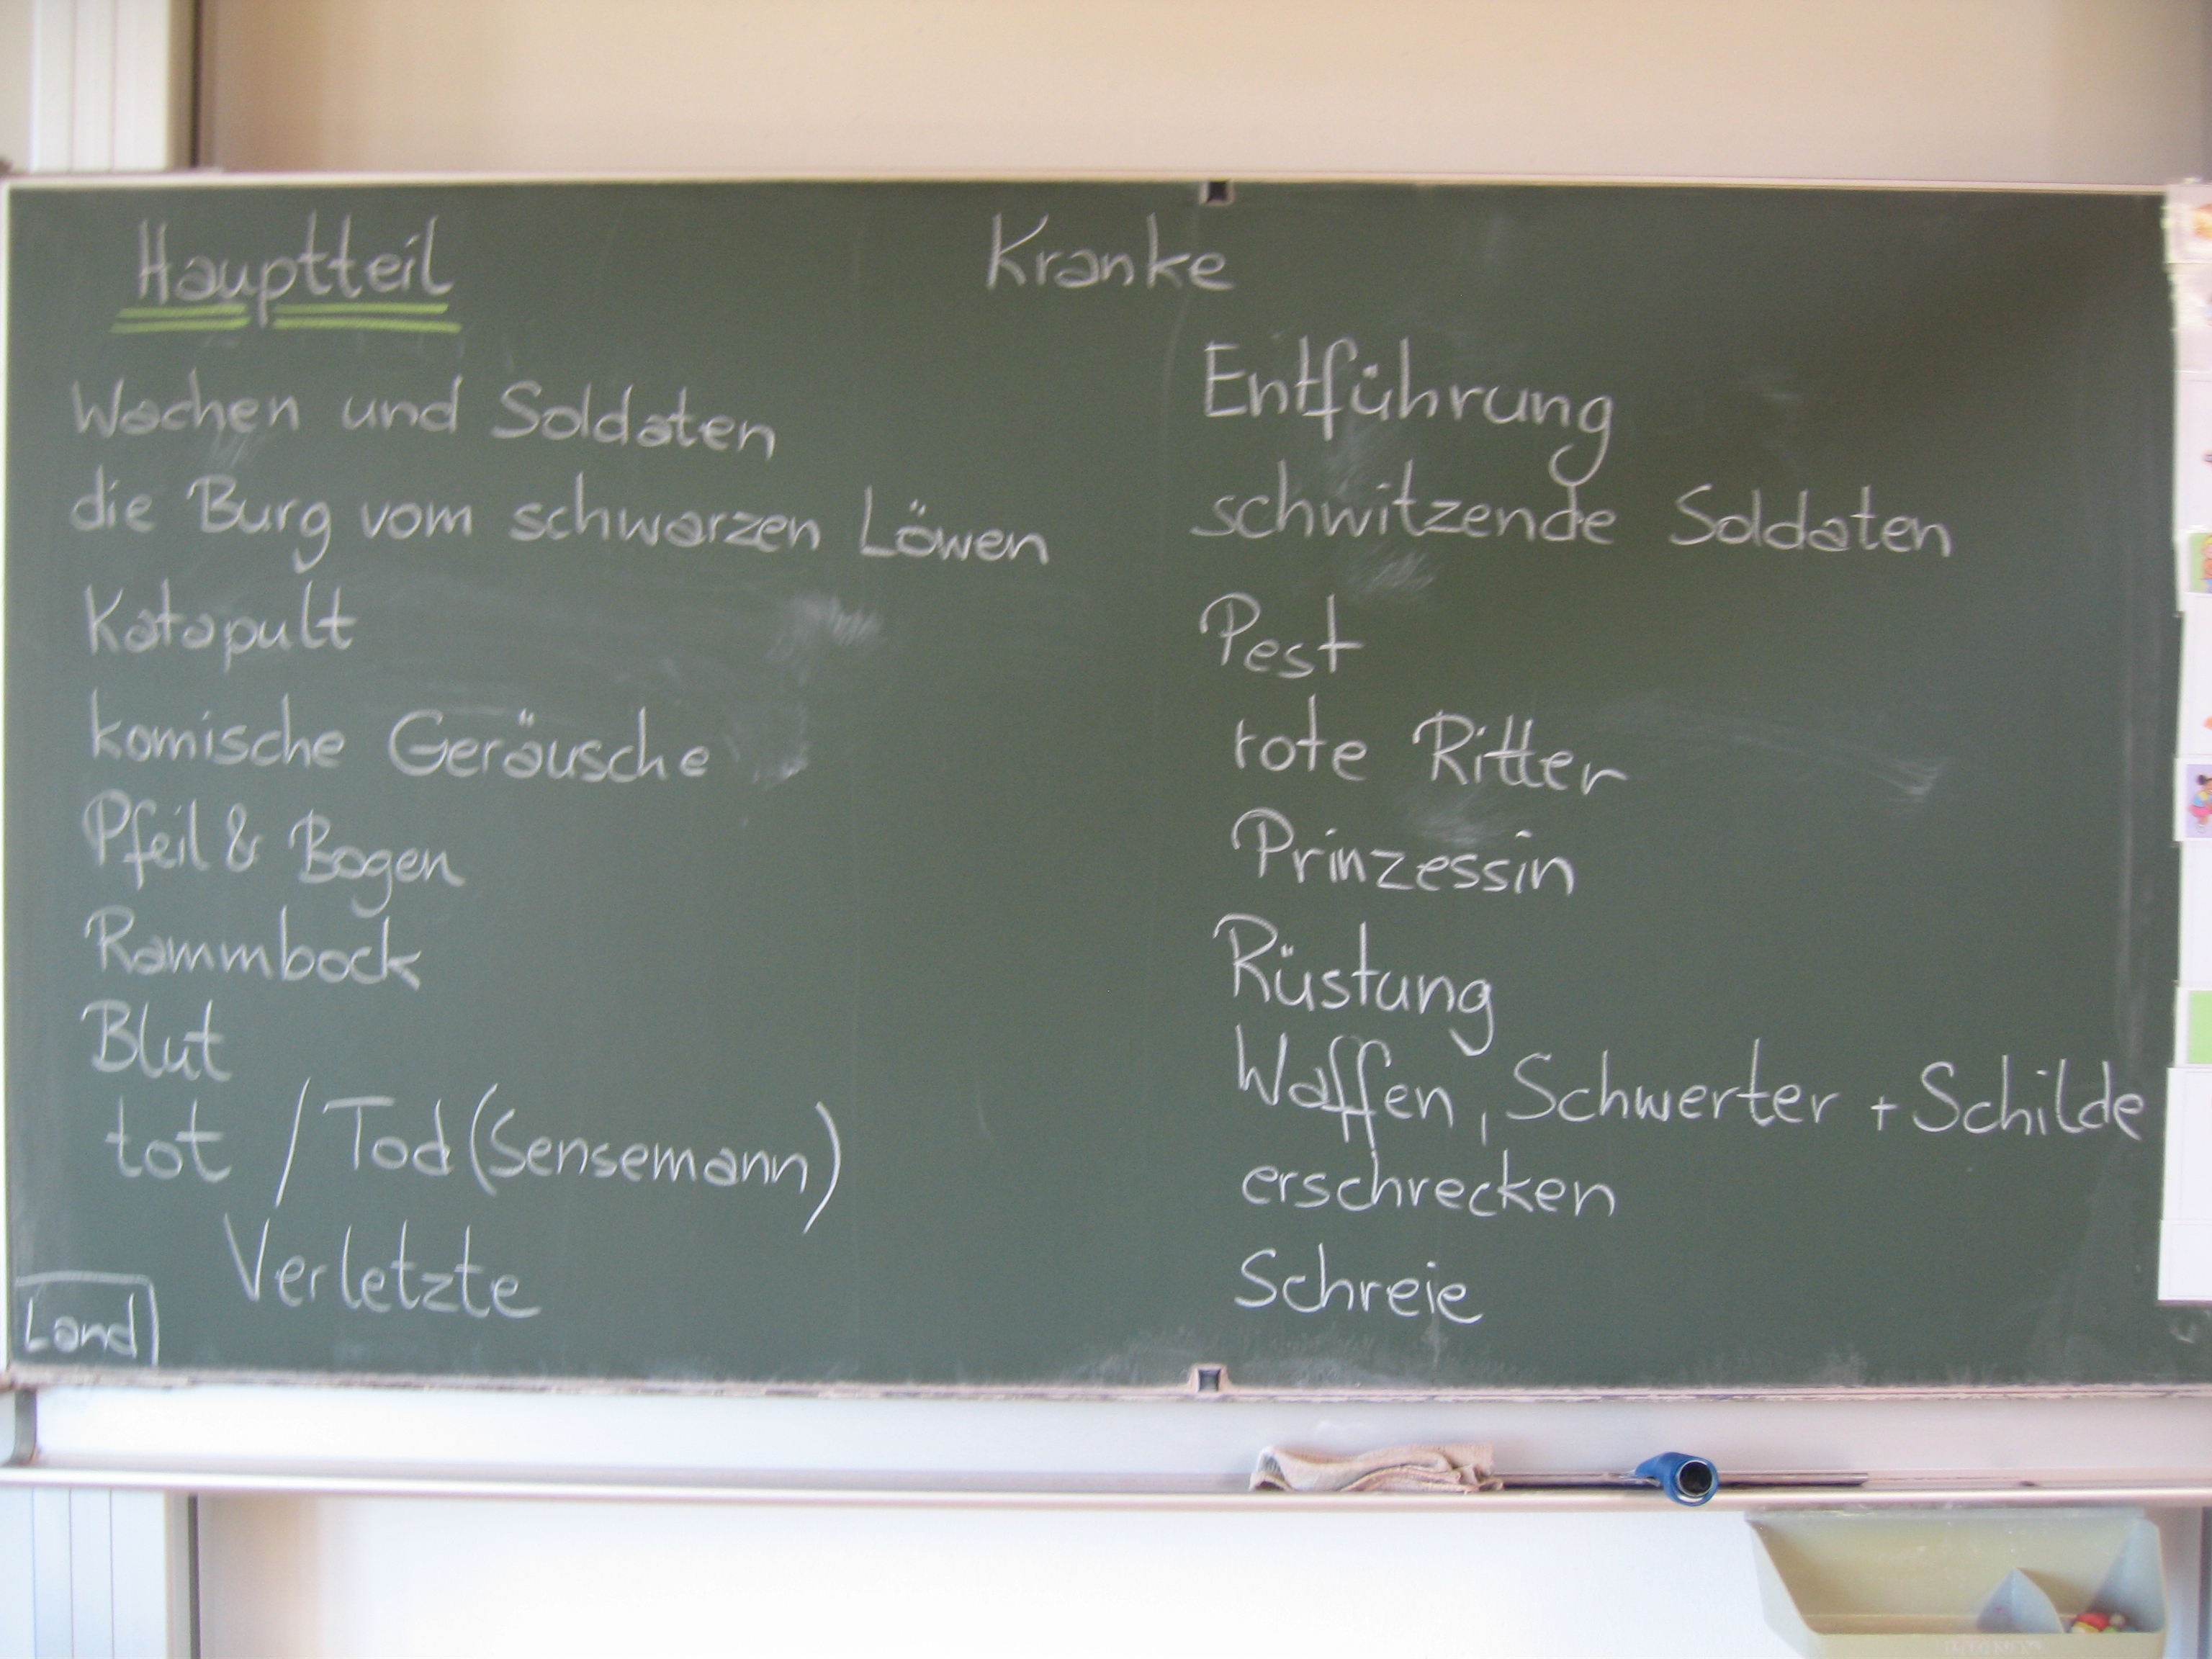 Hauptteil
Wachen und Soldaten
die Burg vom schwarzen Löwen
Katapult
komische Geräusche
Pfeil & Bogen
Rammbock
Blut
tot / Tod (Sensemann)
Verletzte
Land
Kranke
Entführung
schwitzende Soldaten
Pest
rote Ritter
Prinzessin
Rüstung
Waffen, Schwerter + Schilde
erschrecken
Schreie